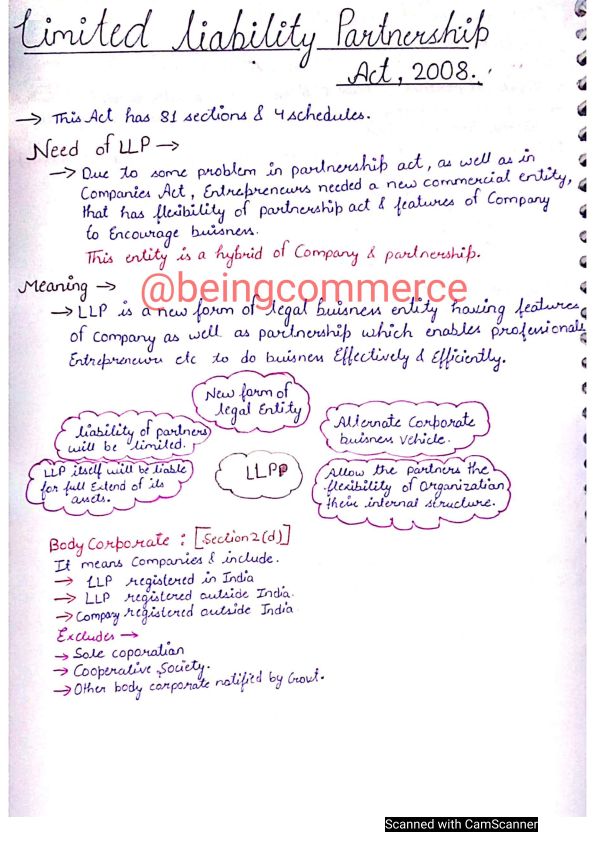 Limited Liability Partnership
Act, 2008.
→ This Act has 81 sections & 4 schedules.
Need of LLP →
→ Due to some problem in partnership act, as well as in
Companies Act, Entrepreneurs needed a new commercial entity,
that has flexibility of partnership act & features of Company
to Encourage buisness.
This entity is a hybrid of Company & partnership.
Meaning →
@beingcommerce
→ LLP is a new form of legal buisness entity having features
of Company as well as partnership which enables professionals
Entrepreneurs etc to do buisness Effectively & Efficiently.
New form of
legal Entity
liability of partners
will be limited.
Alternate Corporate
buisness vehicle.
LLP itself will be liable
for full Extend of its
assets.
LLP
Allow the partners the
flexibility of Organization
their internal structure.
Body Corporate : [Section 2(d)]
It means Companies & include.
→ LLP registered in India
→ LLP registered outside India.
→ Company registered outside India
Excludes →
→ Sole coporation
→ Cooperative Society.
→ Other body corporate notified by Govt.
Scanned with CamScanner